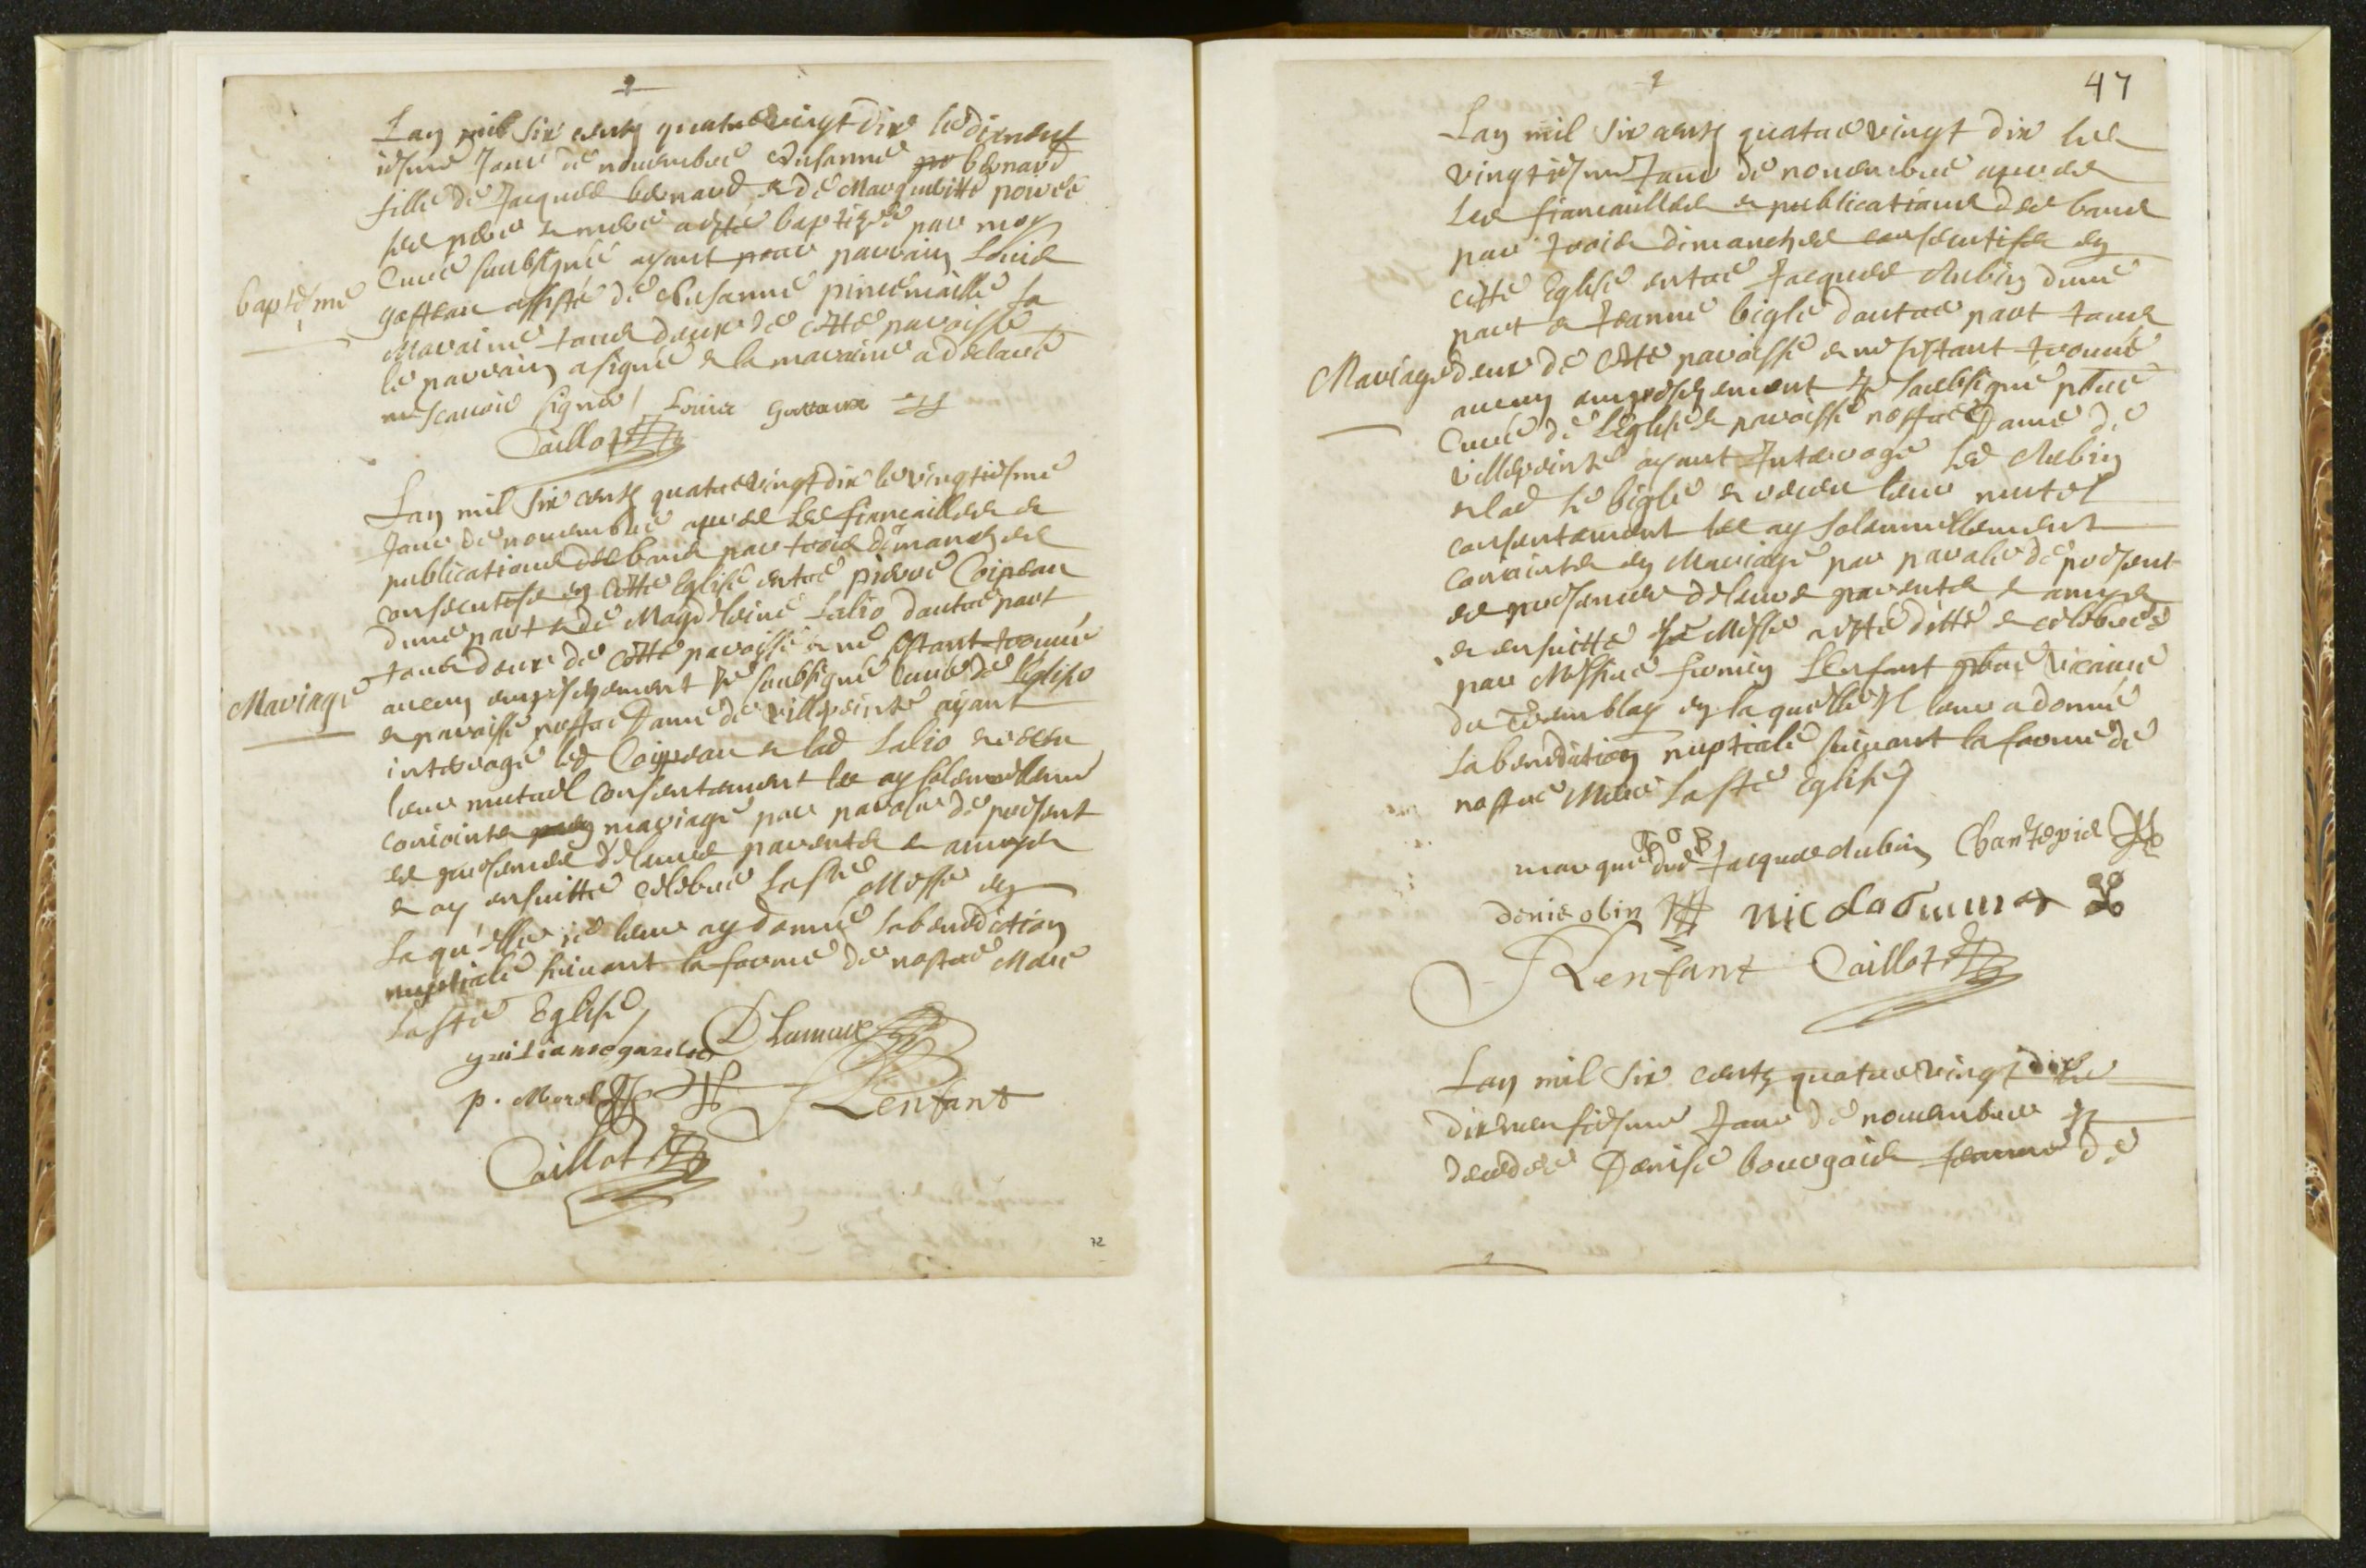 Lan mil six cents quatre vingt dix le dixneuf
iesme Jour de nouembre Susanne bernard
fille de Jacques bernard & de Margueritte poirée
ses pere & mere a esté baptizée par moy
Curé soubsigné ayant pour parrain Louis
gasteau assisté de Susanne pincemaille sa
baptesme
Maraine tous deux de cette paroisse
le parrain a signé & la maraine a declaré
ne scauoir signer / Louis
Caillot
Lan mil six cents quatre vingt dix le vingtiesme
Jour de nouembre apres les fiancailles &
publications des bans par trois dimanches
consecutifs en cette Eglise entre pierre Coipeau
dune part & de Magdeleine Salio dautre part
tous deux de cette paroisse & ne sestant trouué
Mariage
aucun empeschement Je soubsigné Curé de leglise
& paroisse nostre Dame de villepeinte ayant
interrogé led Coipeau & lad Salio receu
leur mutuel consentement les ay solemnellem
conioints en mariage par parolle de present
es presences de leurs parents & amys
& ay ensuitte celebré la ste Messe en
laquelle ie leur ay donné la benediction
nuptiale suiuant la forme de nostre Mere
la ste Eglise /
D Lamare
p. Morel
Lenfant
Caillot
72
47
Lan mil six cents quatre vingt dix le
vingtiesme Jour de nouembre apres
les fiancailles & publications des bans
par trois dimanches consecutifs en
cette Eglise entre Jacques Aubin dune
part & Jeanne bigle dautre part tous
Mariage
deux de cette paroisse & ne sestant trouué
aucun empeschement Je soubsigné pbre
Curé de leglise & paroisse nostre Dame de
villepeinte ayant Interrogé led Aubin
& lad bigle & receu leur mutel
consentement les ay solemnellement
conioints en Mariage par parolle de present
es presences de leurs parents & amys
& ensuitte la Messe a esté ditte & celebrée
par Messire firmin Lenfant pbre vicaire
du Tremblay en laquelle Il leur a donné
la benediction nuptiale suiuant la forme de
nostre Mere la ste Eglise /
marque dud Jacques Aubin Chantepie
denis obin
Lenfant Caillot
Lan mil six cents quatre vingt dix le
dixneufiesme Jour de nouembre
decedée Denise bourgois femme de